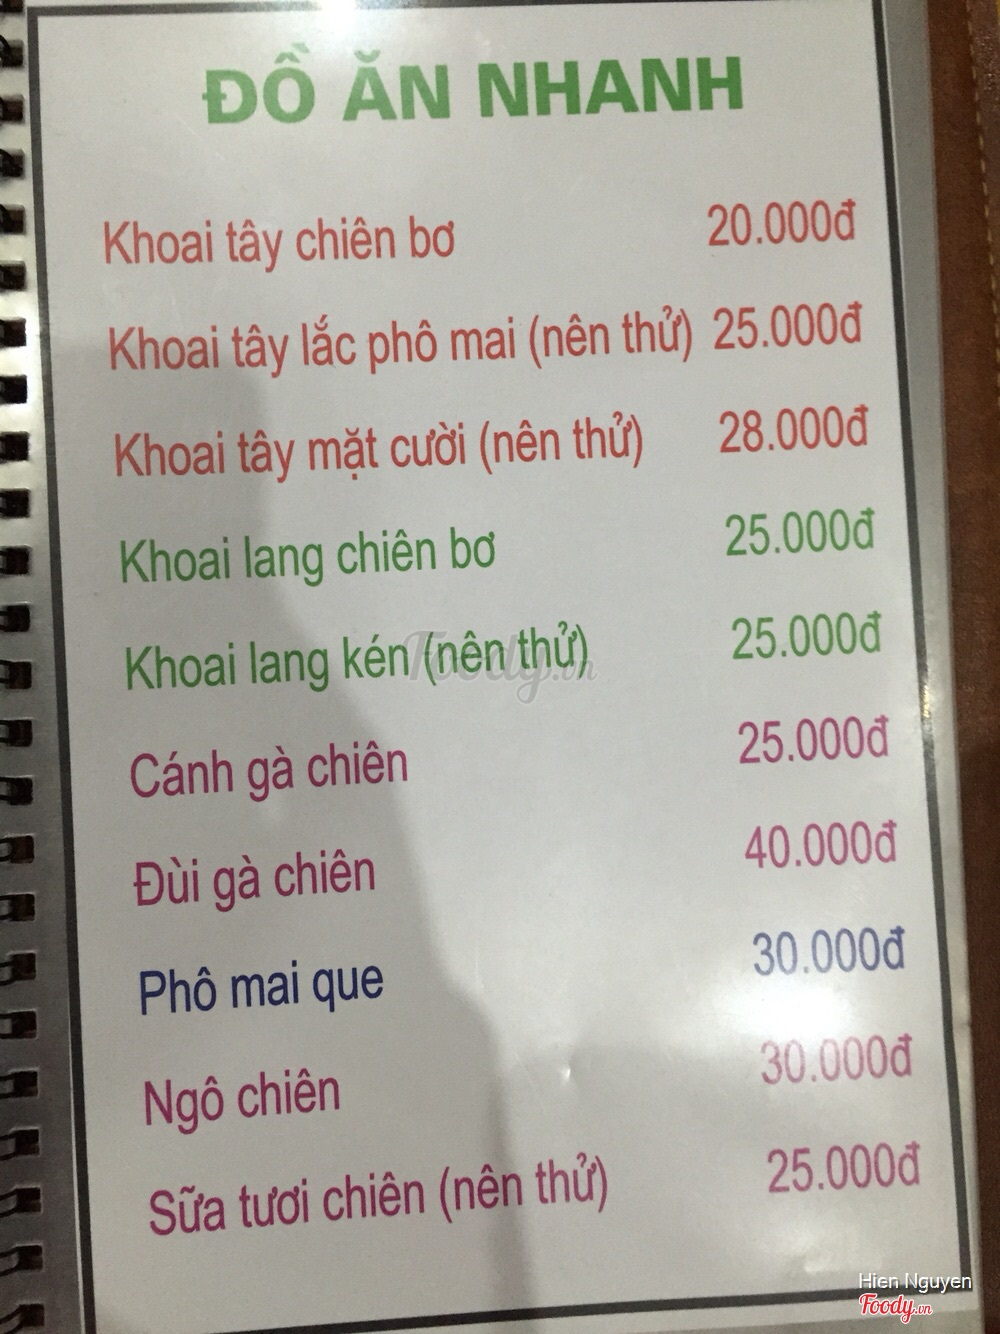 ĐỒ ĂN NHANH
Khoai tây chiên bơ 20.000đ
Khoai tây lắc phô mai (nên thử) 25.000đ
Khoai tây mặt cười (nên thử) 28.000đ
Khoai lang chiên bơ 25.000đ
Khoai lang kén (nên thử) 25.000đ
Cánh gà chiên 25.000đ
Đùi gà chiên 40.000đ
Phô mai que 30.000đ
Ngô chiên 30.000đ
Sữa tươi chiên (nên thử) 25.000đ
Foody.vn
Hien Nguyen
Foody.vn